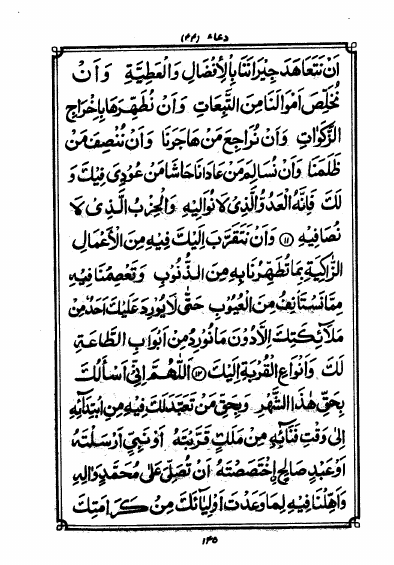 دعاء (۴۴)
اَنْ نَتَعَاهَدَ جِيْرَانَنَا بِالْاِفْضَالِ وَالْعَطِيَّةِ وَاَنْ
نُخَلِّصَ اَمْوَالَنَا مِنَ التَّبِعَاتِ وَاَنْ نُطَهِّرَهَا بِاِخْرَاجِ
الزَّكَوٰاتِ وَاَنْ نُرَاجِعَ مَنْ هَاجَرَنَا وَاَنْ نُنْصِفَ مَنْ
ظَلَمَنَا وَاَنْ نُسَالِمَ مَنْ عَادَانَا حَاشَا مَنْ عُوْدِىَ فِيْكَ وَ
لَكَ فَاِنَّهُ الْعَدُوُّ الَّذِىْ لَا نُوَالِيْهِ وَالْحِزْبُ الَّذِىْ لَا
نُصَافِيْهِ ⑪ وَاَنْ نَتَقَرَّبَ اِلَيْكَ فِيْهِ مِنَ الْاَعْمَالِ
الزَّاكِيَةِ بِمَا تُطَهِّرُنَا بِهِ مِنَ الذُّنُوْبِ وَتَعْصِمُنَا فِيْهِ
مِمَّا نَسْتَاْنِفُ مِنَ الْعُيُوْبِ حَتّٰى لَا يُوْرِدَ عَلَيْكَ اَحَدٌ مِنْ
مَلَآئِكَتِكَ اِلَّا دُوْنَ مَا نُوْرِدُ مِنْ اَبْوَابِ الطَّاعَةِ
لَكَ وَاَنْوَاعِ الْقُرْبَةِ اِلَيْكَ ⑫ اَللّٰهُمَّ اِنِّىْ اَسْاَلُكَ
بِحَقِّ هٰذَا الشَّهْرِ وَبِحَقِّ مَنْ تَعَبَّدَ لَكَ فِيْهِ مِنِ ابْتِدَآئِهِ
اِلٰى وَقْتِ فَنَآئِهِ مِنْ مَلَكٍ قَرَّبْتَهُ اَوْ نَبِىٍّ اَرْسَلْتَهُ
اَوْ عَبْدٍ صَالِحٍ اِخْتَصَصْتَهُ اَنْ تُصَلِّىَ عَلٰى مُحَمَّدٍ وَاٰلِهِ
وَاَهِّلْنَا فِيْهِ لِمَا وَعَدْتَ اَوْلِيَآئَكَ مِنْ كَرَامَتِكَ
۱۴۵